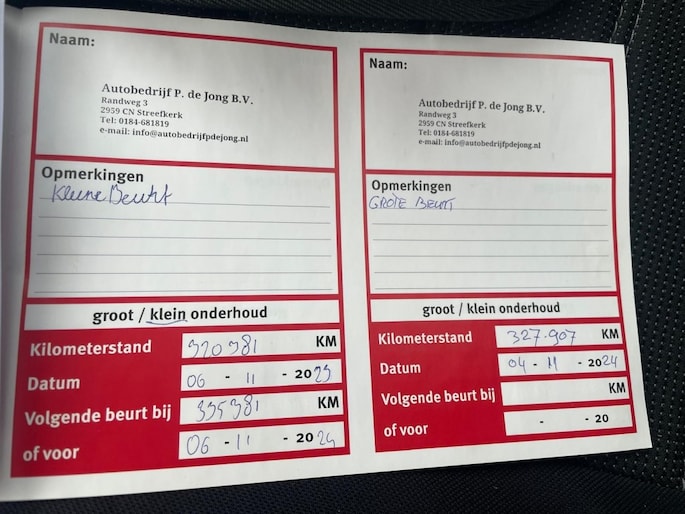 Naam:
Autobedrijf P. de Jong B.V.
Randweg 3
2959 CN Streefkerk
Tel: 0184-681819
e-mail: info@autobedrijfpdejong.nl
Opmerkingen
Kleine Beurt
groot / klein onderhoud
Kilometerstand 320381 KM
Datum 06 - 11 - 2023
Volgende beurt bij 335381 KM
of voor 06 - 11 - 2024
Naam:
Autobedrijf P. de Jong B.V.
Randweg 3
2959 CN Streefkerk
Tel: 0184-681819
e-mail: info@autobedrijfpdejong.nl
Opmerkingen
GROTE BEURT
groot / klein onderhoud
Kilometerstand 327.907 KM
Datum 04 - 11 - 2024
Volgende beurt bij KM
of voor - - 20